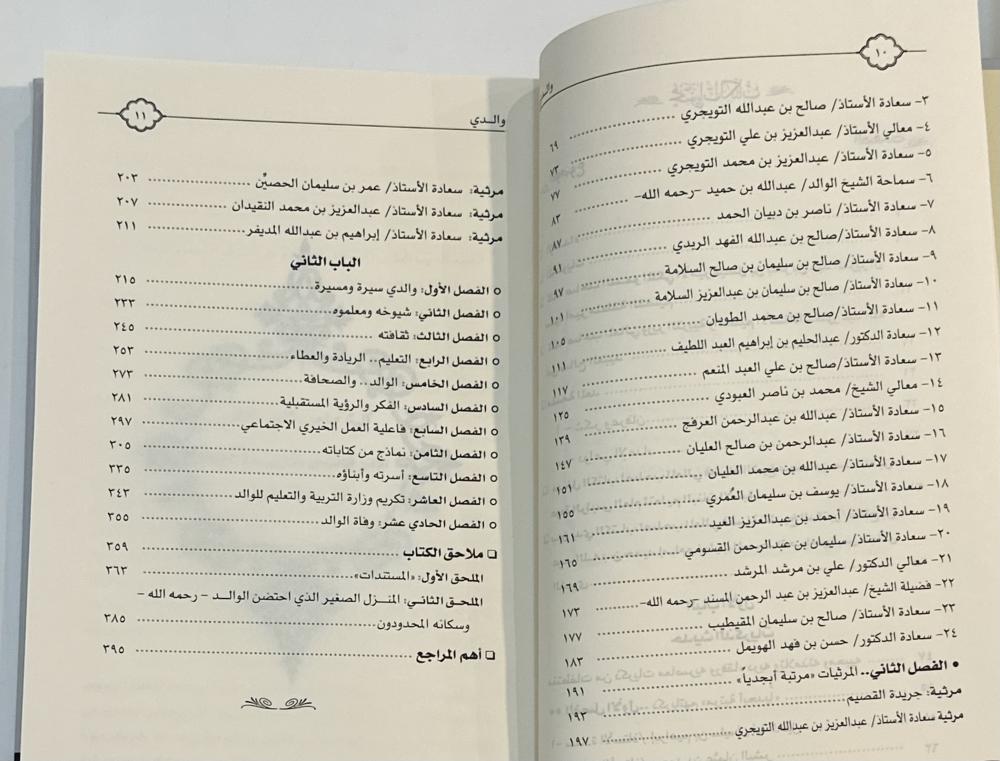 ١٠
٣- سعادة الأستاذ/ صالح بن عبدالله التويجري ٦٩
٤- معالي الأستاذ/ عبدالعزيز بن علي التويجري ٧٣
٥- سعادة الأستاذ/ عبدالعزيز بن محمد التويجري ٧٧
٦- سماحة الشيخ الوالد/ عبدالله بن حميد –رحمه الله- ٨٣
٧- سعادة الأستاذ/ ناصر بن دبيان الحمد ٨٧
٨- سعادة الأستاذ/ صالح بن عبدالله الفهد الريدي ٩١
٩- سعادة الأستاذ/ صالح بن سليمان بن صالح السلامة ٩٧
١٠- سعادة الأستاذ/ صالح بن سليمان بن عبدالعزيز السلامة ١٠١
١١- سعادة الأستاذ/صالح بن محمد الطويان ١٠٥
١٢- سعادة الدكتور/ عبدالحليم بن إبراهيم العبد اللطيف ١١١
١٣- سعادة الأستاذ/صالح بن علي العبد المنعم ١١٧
١٤- معالي الشيخ/ محمد بن ناصر العبودي ١٢٥
١٥- سعادة الأستاذ/ عبدالله بن عبدالرحمن العرفج ١٣٩
١٦- سعادة الأستاذ/ عبدالرحمن بن صالح العليان ١٤٧
١٧- سعادة الأستاذ/ عبدالله بن محمد العليان ١٥١
١٨- سعادة الأستاذ/ يوسف بن سليمان العُمري ١٥٥
١٩- سعادة الأستاذ/ أحمد بن عبدالعزيز العيد ١٦١
٢٠- سعادة الأستاذ/ سليمان بن عبدالرحمن القسومي ١٦٥
٢١- معالي الدكتور/ علي بن مرشد المرشد ١٦٩
٢٢- فضيلة الشيخ/ عبدالعزيز بن عبد الرحمن المسند –رحمه الله- ١٧٣
٢٣- سعادة الأستاذ/ صالح بن سليمان المقيطيب ١٧٧
٢٤- سعادة الدكتور/ حسن بن فهد الهويمل ١٨٣
• الفصل الثاني.. المرثيات «مرتبة أبجدياً» ١٩١
مرثية: جريدة القصيم ١٩٣
مرثية سعادة الأستاذ/ عبدالعزيز بن عبدالله التويجري ١٩٧
والـدي
١١
مرثية: سعادة الأستاذ/ عمر بن سليمان الحصيِّن ٢٠٣
مرثية: سعادة الأستاذ/ عبدالعزيز بن محمد النقيدان ٢٠٧
مرثية: سعادة الأستاذ/ إبراهيم بن عبدالله المديفر ٢١١
الباب الثاني
○ الفصل الأول: والدي سيرة ومسيرة ٢١٥
○ الفصل الثاني: شيوخه ومعلموه ٢٣٣
○ الفصل الثالث: ثقافته ٢٤٥
○ الفصل الرابع: التعليم.. الريادة والعطاء ٢٥٣
○ الفصل الخامس: الوالد.. والصحافة ٢٧٣
○ الفصل السادس: الفكر والرؤية المستقبلية ٢٨١
○ الفصل السابع: فاعلية العمل الخيري الاجتماعي ٢٩٧
○ الفصل الثامن: نماذج من كتاباته ٣٠٥
○ الفصل التاسع: أسرته وأبناؤه ٣٣٥
○ الفصل العاشر: تكريم وزارة التربية والتعليم للوالد ٣٤٣
○ الفصل الحادي عشر: وفاة الوالد ٣٥٥
❑ ملاحق الكتاب ٣٥٩
الملحق الأول: «المستندات» ٣٦٣
الملحـق الثاني: المنـزل الصغير الذي احتضن الوالـد – رحمه الله –
وسكانه المحدودون ٣٨٥
❑ أهم المراجع ٣٩٥